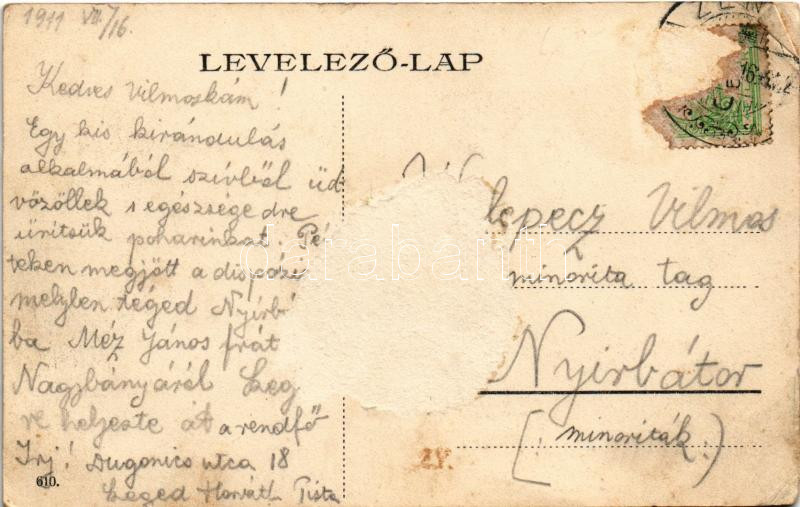 1911 VII/16.
LEVELEZŐ-LAP
Kedves Vilmoskám!
Egy kis kirándulás
alkalmából szívből üd-
vözöllek s egészségedre
ürítsük poharinkat. Pé
teken megjött a dispozi
melyben téged Nyírbá
ba Méz János frát
Nagybányáról Szeg
re helyezte át a rendfő
Irj! Dugonics utca 18
Szeged Horváth Pista
610.
lepecz Vilmos
minorita tag
Nyirbátor
(minoriták.)
darabanth